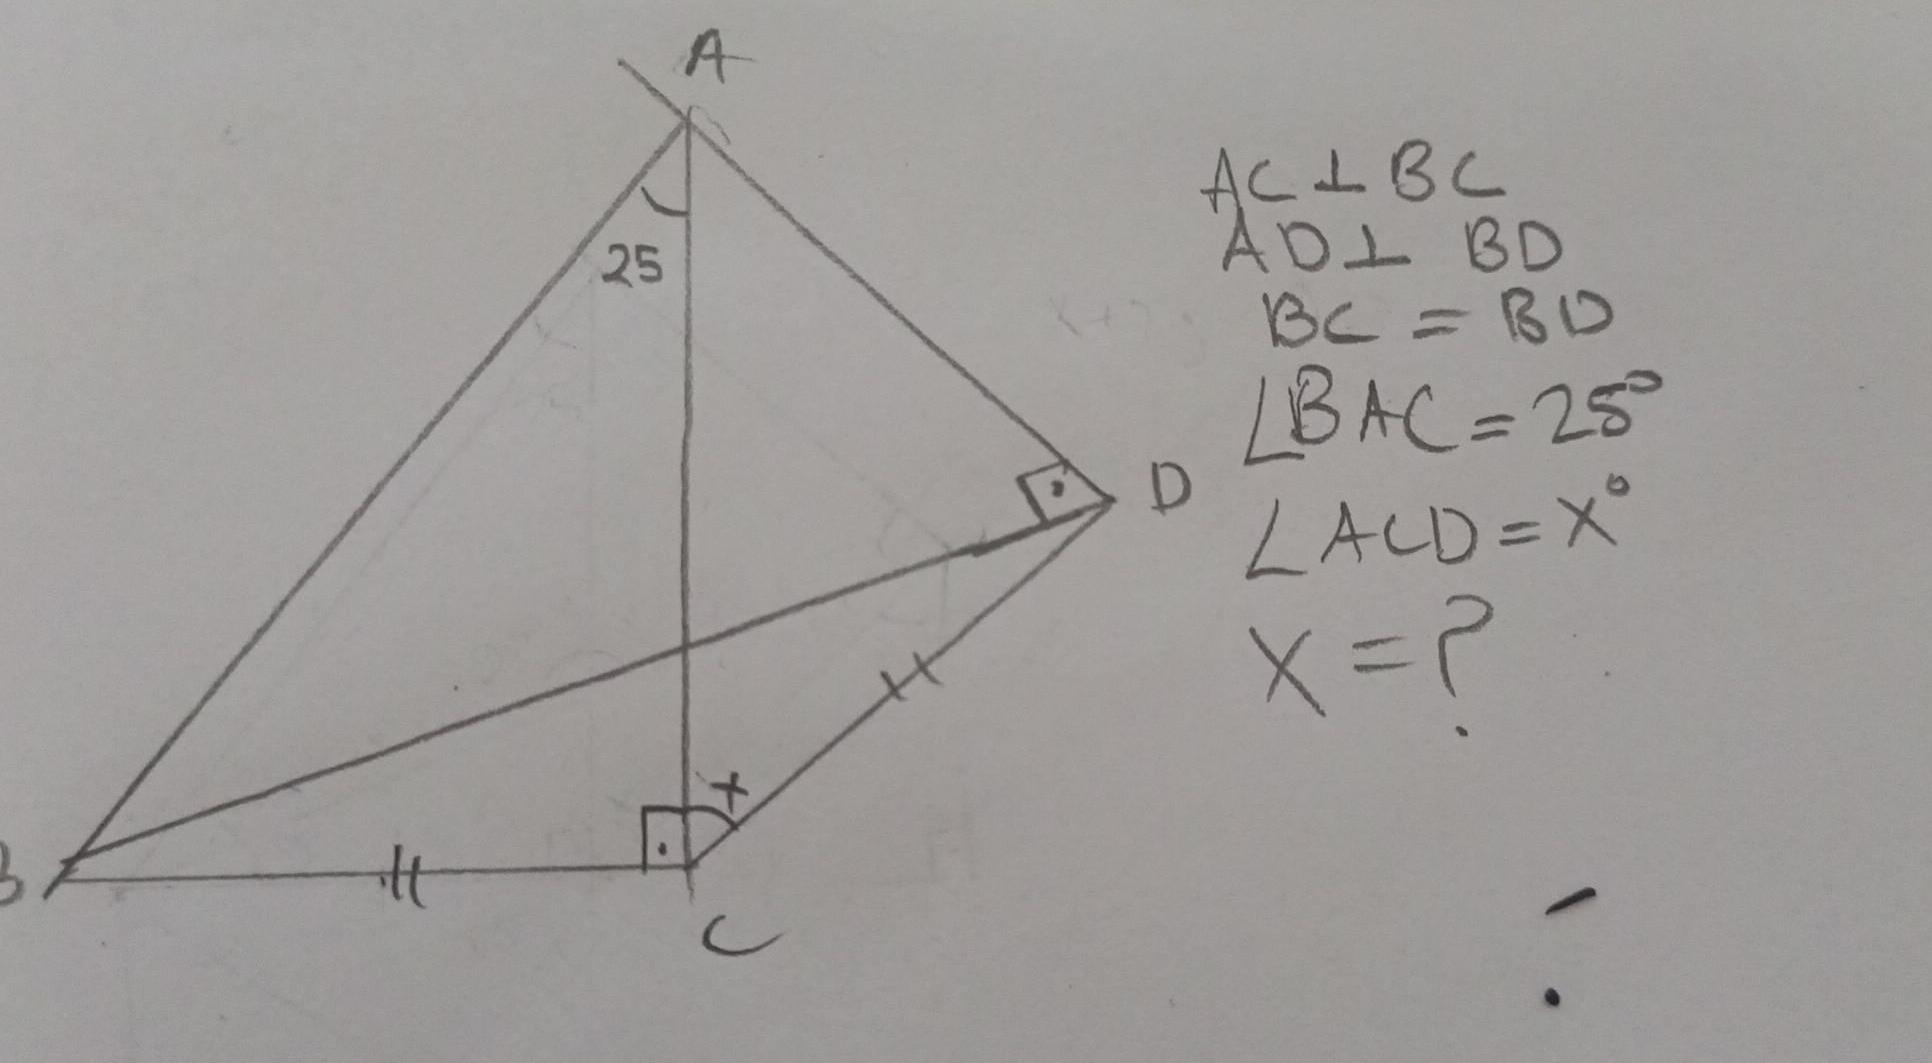 A
25
D
x
B
C
AC ⊥ BC
AD ⊥ BD
BC = BD
∠BAC = 25°
∠ACD = x°
x = ?